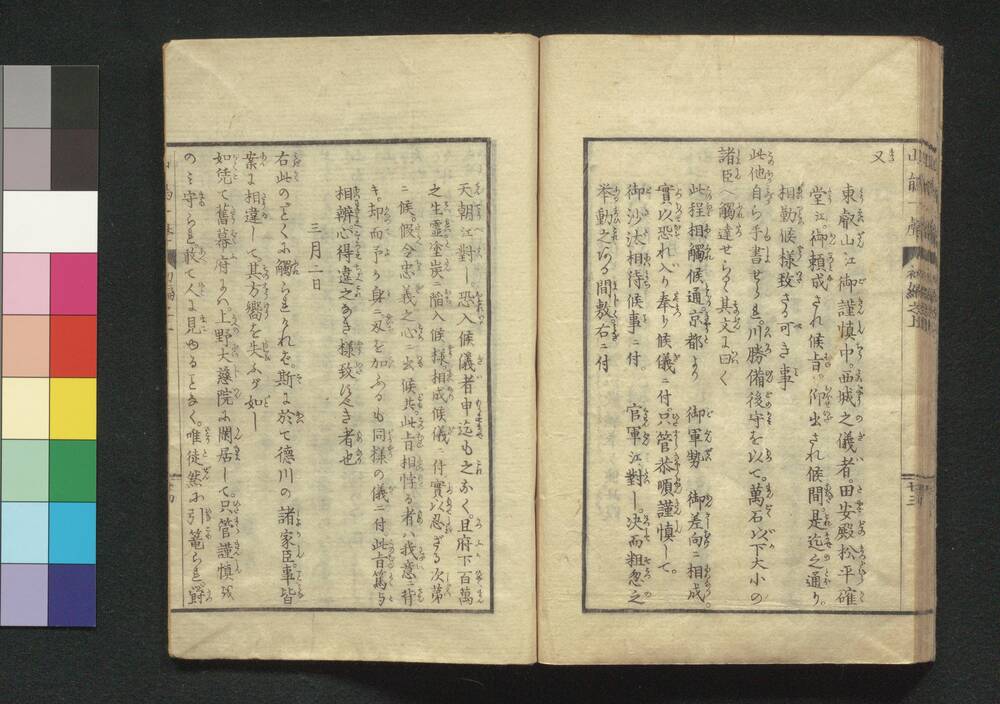 又
東叡山江御謹慎中。西城之儀者。田安殿松平確
堂江御頼成され候旨。仰出され候間。是迄之通り。
相勤候様致さる可き事
此他自ら手書せられ。川勝備後守を以て。萬石以下大小の
諸臣へ觸達せらる。其文に曰く
此程相觸候通京都より 御軍勢 御差向に相成。
實以恐れ入り奉り候儀ニ付。只管恭順謹慎して。
御沙汰相待候事ニ付。 官軍江對し。决而粗忽之
挙動之なる間敷。右ニ付
天朝江對し。恐入候儀者申迄も之なく。且府下百萬
之生霊塗炭ニ陥入候様。相成候儀ニ付實以忍ざる次第
ニ候。假令忠義之心ニ出候共。此旨相悖る者ハ我意ニ背
キ。却而予が身ニ刄を加ふるも同様の儀ニ付。此旨篤与
相辨心得違之なき様致べき者也
三月二日
右此のごとくに觸られければ。斯に於て德川の諸家臣。事皆
案に相違して。其方嚮を失ふが如し
如凭て舊幕府にハ。上野大慈院に閑居して。只管謹慎
のミ守られ。敢て人に見ゆることなく。唯徒然に引篭られ。